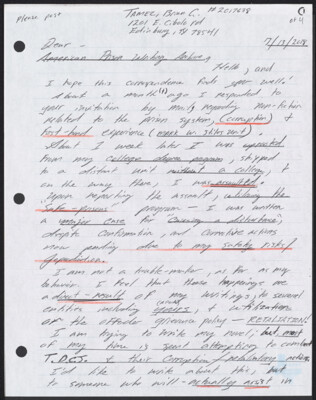 Please post
Tamez, Brian C. #
1201 E. Cibolo Rd
Edinburg, TX 78541
Dear -
American Prison Writing Archive,
Hello, and
I hope this correspondence finds you well!
About a month(s) ago I responded to
your invitation by my non-fiction
related to the prison system, (corruption) &
first-hand experience
About 1 week later I was uprooted
from my college program, shipped
to a distant unit without a college, &
on the way there, I was assaulted.
Upon reporting the assault,
safe-prisons program - I was written
a major case for "causing a disturbance",
despite confirmation, and corrective actions
now pending due to my safety risks/
I am not a trouble-maker, as far as my
behavior. I feel that these happenings are
a direct-result of my writings to several
entities including yours, & utilization
of the offender grievance policy - RETALIATION!
I am trying to write my novel, but most
of my time is spent attempting to combat
T.D.C.J. & their corruption/retaliatory
I'd like to write about this, but
to someone who will - actually assist in